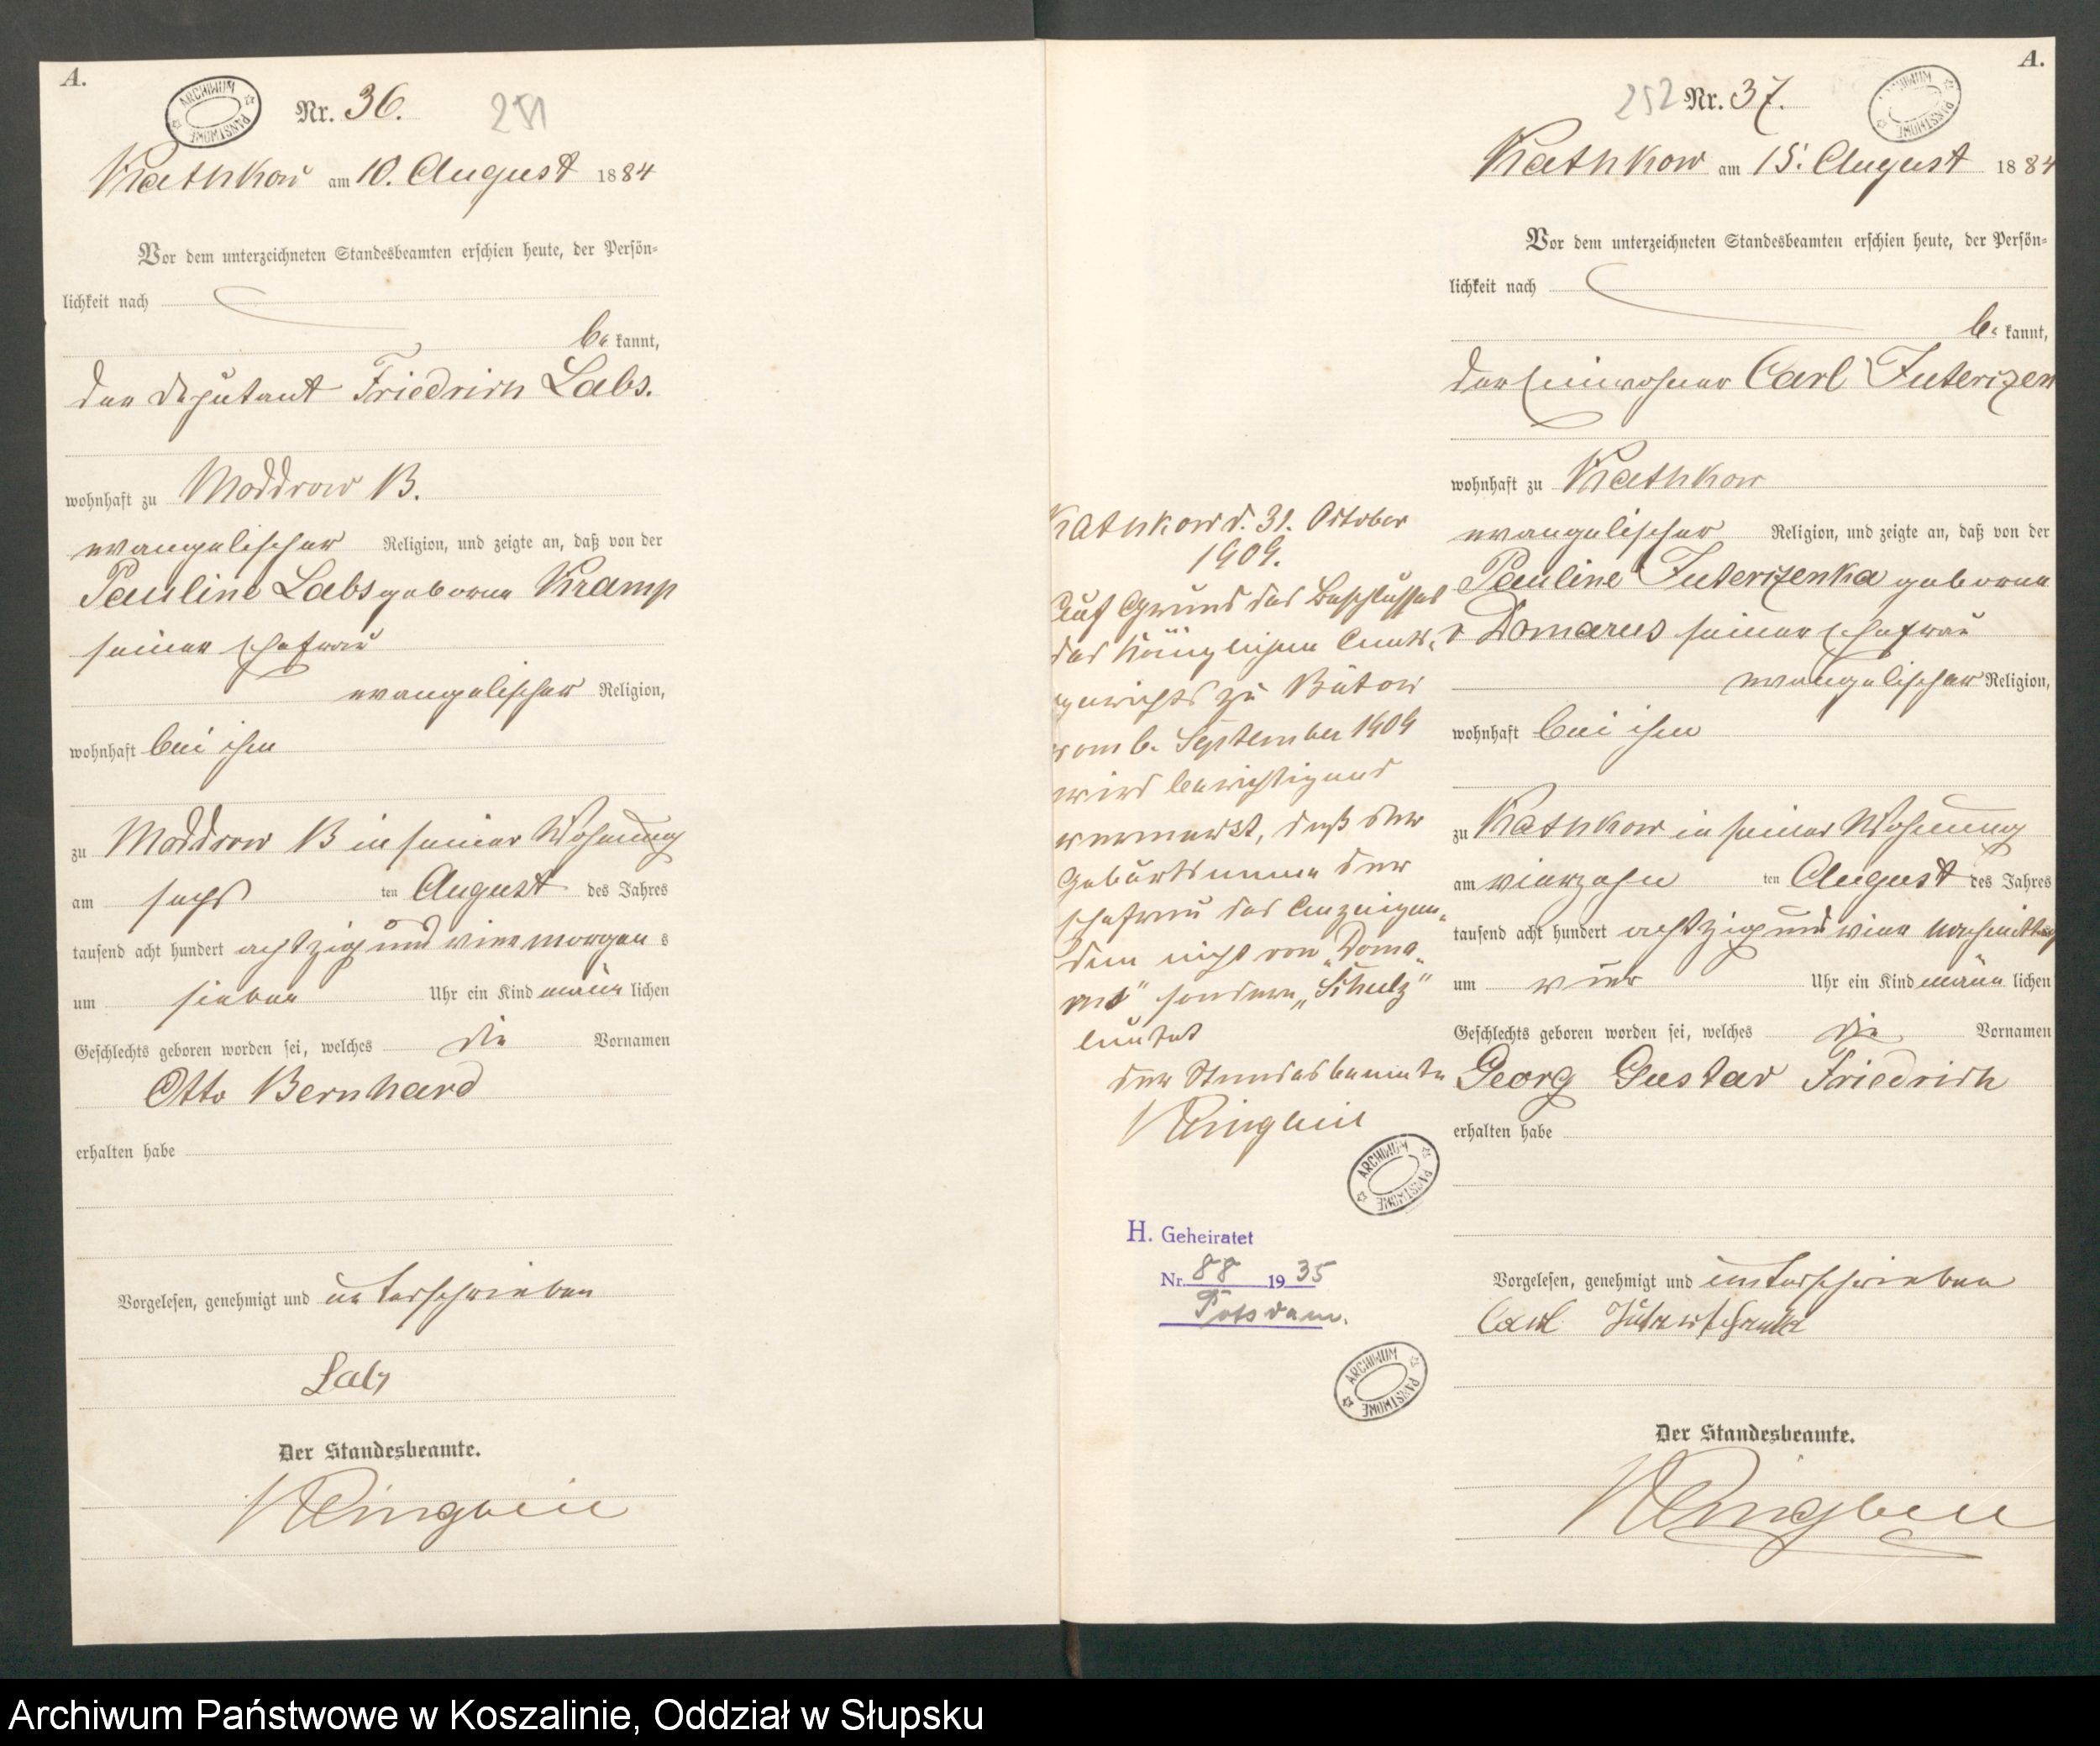 A.
ARCHIWUM PAŃSTWOWE
Nr. 36.
251
Kathkow am 10. August 1884
Vor dem unterzeichneten Standesbeamten erschien heute, der Persön-
lichkeit nach
be kannt,
der Deputant Friedrich Labs.
wohnhaft zu Moddrow B.
evangelischer Religion, und zeigte an, daß von der
Pauline Labs geborne Kramp
seiner Ehefrau
evangelischer Religion,
wohnhaft bei ihm
zu Moddrow B in seiner Wohnung
am sechs ten August des Jahres
tausend acht hundert achtzig und vier morgen s
um sieben Uhr ein Kind männ lichen
Geschlechts geboren worden sei, welches die Vornamen
Otto Bernhard
erhalten habe
Vorgelesen, genehmigt und unterschrieben
Labs
Der Standesbeamte.
A.
ARCHIWUM PAŃSTWOWE
252
Nr. 37.
Kathkow am 15. August 1884
Vor dem unterzeichneten Standesbeamten erschien heute, der Persön-
lichkeit nach
be kannt,
der Einwohner Carl Juterzen
wohnhaft zu Kathkow
evangelischer Religion, und zeigte an, daß von der
Pauline Juterzenka geborne
v Domarus seiner Ehefrau
evangelischer Religion,
wohnhaft bei ihm
zu Kathkow in seiner Wohnung
am vierzehn ten August des Jahres
tausend acht hundert achtzig und vier nachmittag
um vier Uhr ein Kind männ lichen
Geschlechts geboren worden sei, welches die Vornamen
Georg Gustav Friedrich
erhalten habe
Vorgelesen, genehmigt und unterschrieben
Carl
Der Standesbeamte.
Kathkow d. 31. October
1909.
Auf Grund des Beschlusses
des Königlichen Amts-
gerichts zu Bütow
vom 6. September 1909
wird berichtigend
vermerkt, daß der
Geburtsname der
Ehefrau des Anzeigen-
den nicht von „Doma-
rus" sondern „Schulz"
lautet
Der Standesbeamte
ARCHIWUM PAŃSTWOWE
H. Geheiratet
Nr. 88 1935
Potsdam.
ARCHIWUM PAŃSTWOWE
Archiwum Państwowe w Koszalinie, Oddział w Słupsku